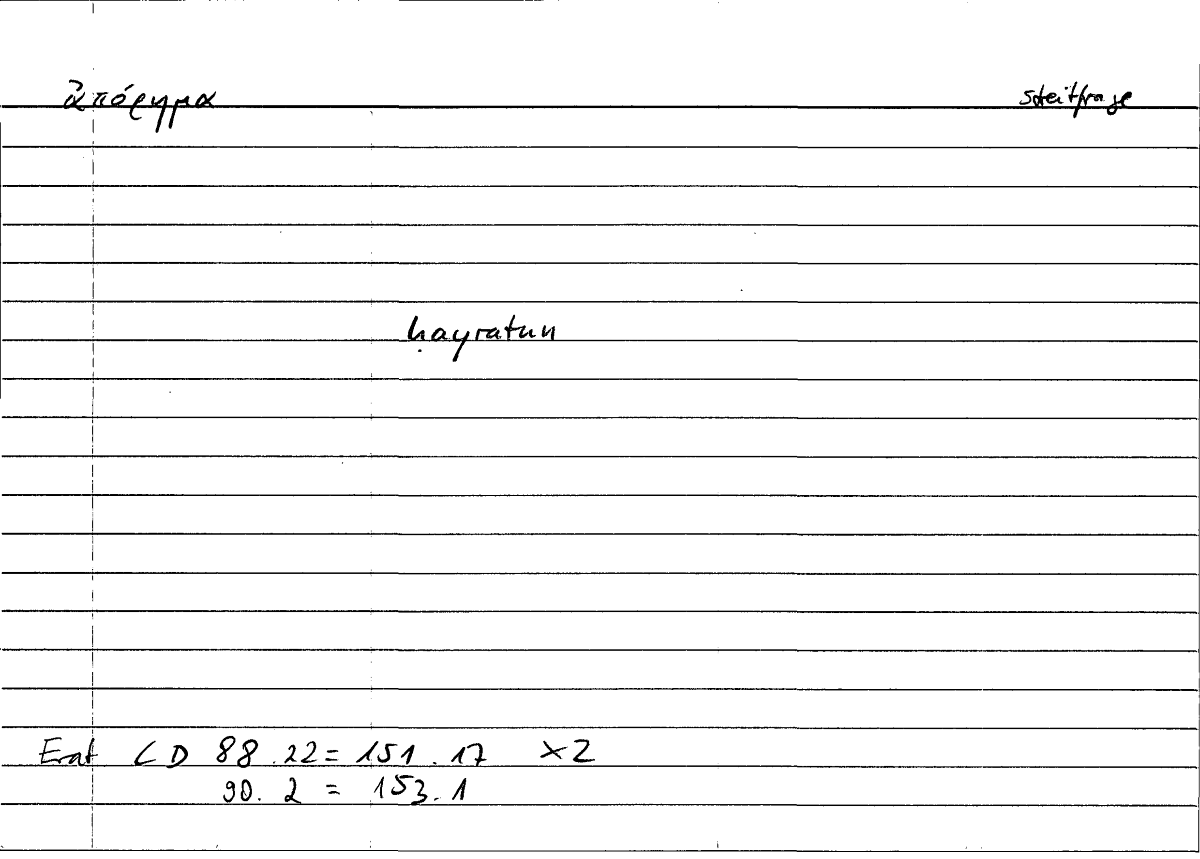 ἀπόρημα Streitfrage
ḥayratun
Erat CD 88.22 = 151.17 ×2
90.2 = 153.1